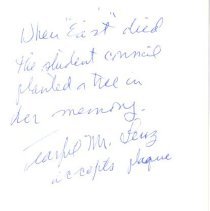 When "Eist" died
the student council
planted a tree in
her memory.
Tearful Mr. Lenz
accepts plaque